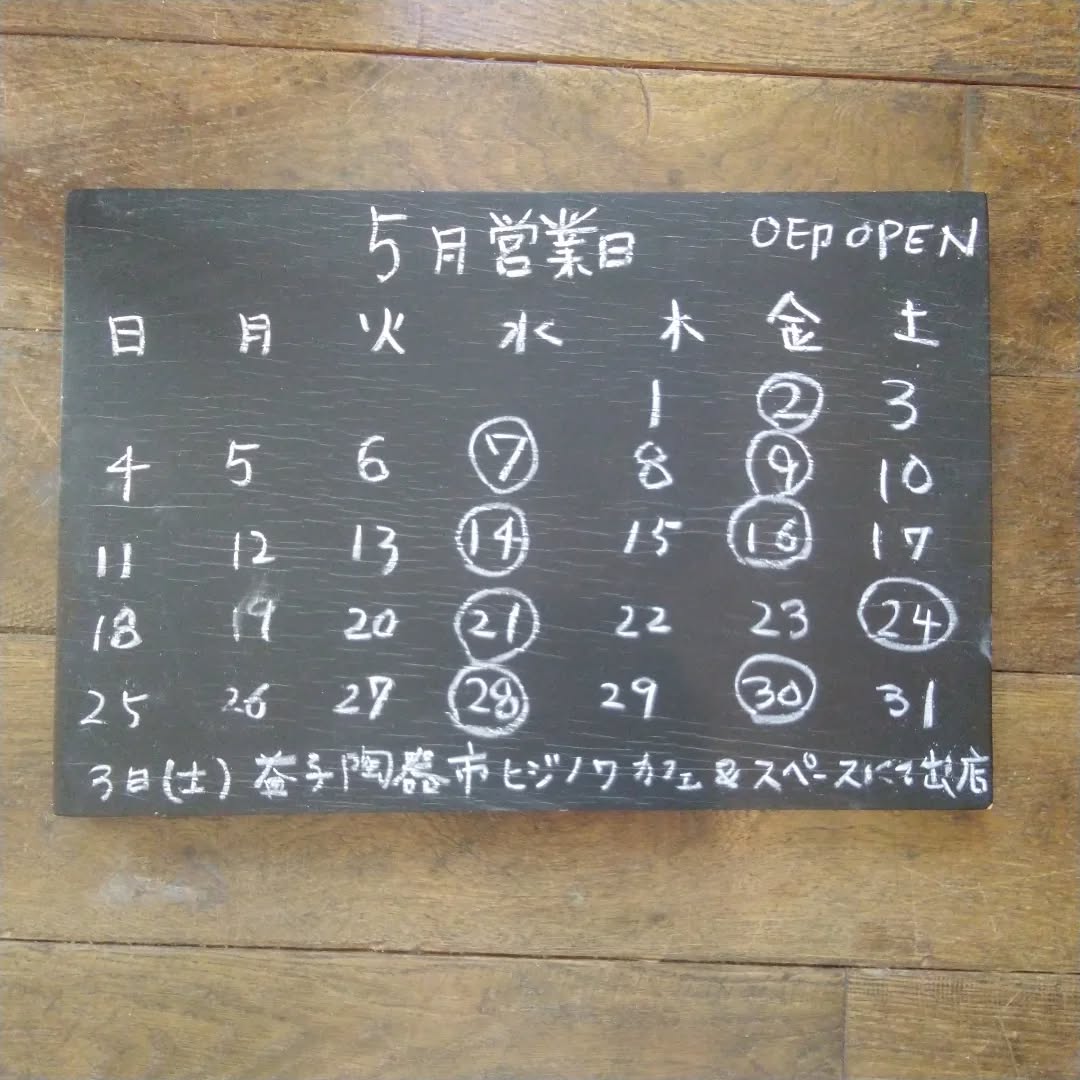 5月営業日 OEp OPEN
日 月 火 水 木 金 土
1 2 3
4 5 6 7 8 9 10
11 12 13 14 15 16 17
18 19 20 21 22 23 24
25 26 27 28 29 30 31
3日(土) 益子陶器市ヒジノワカフェ&スペースにて出店